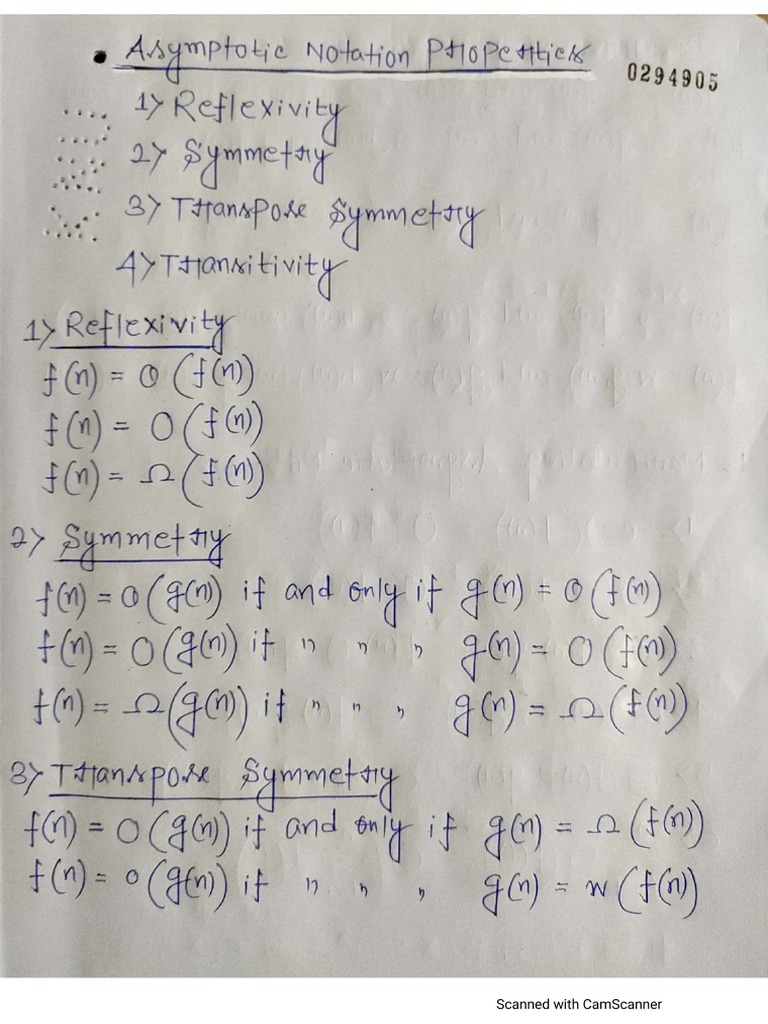 • Asymptotic Notation Properties
0294905
1> Reflexivity
2> Symmetry
3> Transpose Symmetry
4> Transitivity
1> Reflexivity
f(n) = Θ (f(n))
f(n) = O (f(n))
f(n) = Ω (f(n))
2> Symmetry
f(n) = Θ (g(n)) if and only if g(n) = Θ (f(n))
f(n) = O (g(n)) if " " " g(n) = O (f(n))
f(n) = Ω (g(n)) if " " " g(n) = Ω (f(n))
3> Transpose Symmetry
f(n) = O (g(n)) if and only if g(n) = Ω (f(n))
f(n) = o (g(n)) if " " " g(n) = w (f(n))
Scanned with CamScanner